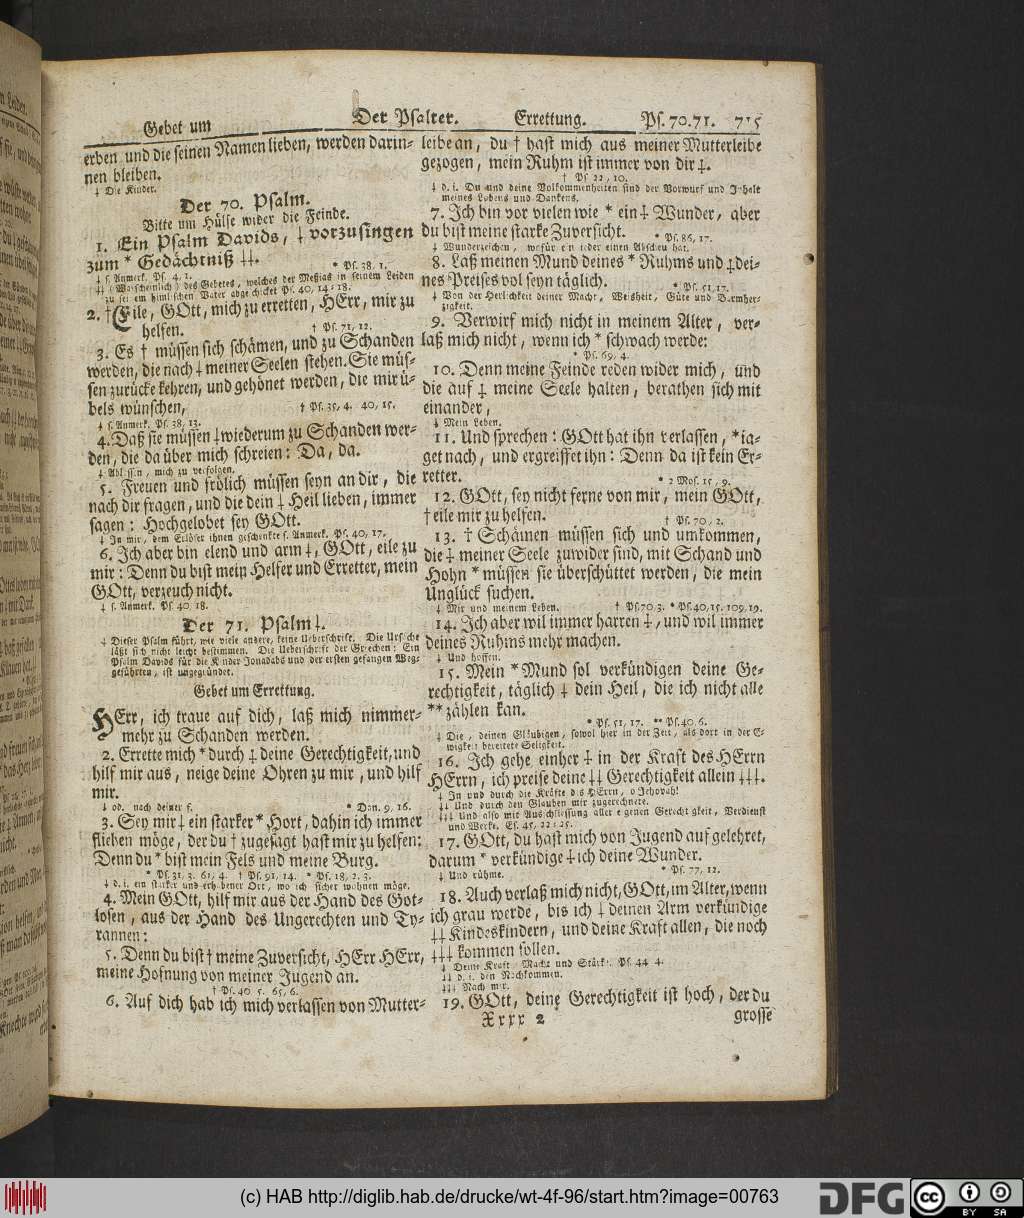 Gebet um Der Psalter. Errettung. Ps. 70.71. 715
erben und die seinen Namen lieben, werden darin-
nen bleiben.
‡ Die Kinder.
Der 70. Psalm.
Bitte um Hülfe wider die Feinde.
1. Ein Psalm Davids, ‡ vorzusingen
zum * Gedächtniß ‡‡.
* Ps. 38, 1.
‡ s. Anmerk. Ps. 4, 1.
‡‡ (Warscheinlich) des Gebetes, welches der Meßias in seinem Leiden
zu seinem himlischen Vater abgeschicket Ps. 40, 14-18.
2. † Eile, GOtt, mich zu erretten, HErr, mir zu
helfen.
† Ps. 71, 12.
3. Es † müssen sich schämen, und zu Schanden
werden, die nach ‡ meiner Seelen stehen. Sie müs-
sen zurücke kehren, und gehönet werden, die mir ü-
bels wünschen,
† Ps. 35, 4. 40, 15.
‡ s. Anmerk. Ps. 38, 13.
4. Daß sie müssen ‡ wiederum zu Schanden wer-
den, die da über mich schreien: Da, da.
‡ Ablassen, mich zu verfolgen.
5. Freuen und frölich müssen seyn an dir, die
nach dir fragen, und die dein ‡ Heil lieben, immer
sagen: Hochgelobet sey GOtt.
‡ In mir, dem Erlöser ihnen geschenkte s. Anmerk. Ps. 40, 17.
6. Ich aber bin elend und arm ‡, GOtt, eile zu
mir: Denn du bist mein Helfer und Erretter, mein
GOtt, verzeuch nicht.
‡ s. Anmerk. Ps. 40, 18.
Der 71. Psalm ‡.
‡ Dieser Psalm führt, wie viele andere, keine Ueberschrift. Die Ursache
läßt sich nicht leicht bestimmen. Die Ueberschrift der Griechen: Ein
Psalm Davids für die Kinder Jonadabs und der ersten gefangen Weg-
geführten, ist ungegründet.
Gebet um Errettung.
HErr, ich traue auf dich, laß mich nimmer-
mehr zu Schanden werden.
2. Errette mich * durch ‡ deine Gerechtigkeit, und
hilf mir aus, neige deine Ohren zu mir, und hilf
mir.
‡ od. nach deiner s. * Dan. 9, 16.
3. Sey mir ‡ ein starker * Hort, dahin ich immer
fliehen möge, der du † zugesagt hast mir zu helfen:
Denn du * bist mein Fels und meine Burg.
* Ps. 31, 3. 61, 4. † Ps. 91, 14. * Ps. 18, 2. 3.
‡ d. i. ein starker und erhabener Ort, wo ich sicher wohnen möge.
4. Mein GOtt, hilf mir aus der Hand des Got-
losen, aus der Hand des Ungerechten und Ty-
rannen:
5. Denn du bist † meine Zuversicht, HErr HErr,
meine Hofnung von meiner Jugend an.
† Ps. 40, 5. 65, 6.
6. Auf dich hab ich mich verlassen von Mutter-
leibe an, du † hast mich aus meiner Mutterleibe
gezogen, mein Ruhm ist immer von dir ‡.
† Ps. 22, 10.
‡ d. i. Du und deine Volkommenheiten sind der Vorwurf und Inhalt
meines Lobens und Dankens.
7. Ich bin vor vielen wie * ein ‡ Wunder, aber
du bist meine starke Zuversicht.
* Ps. 86, 17.
‡ Wunderzeichen, wofür ein ieder einen Abscheu hat.
8. Laß meinen Mund deines * Ruhms und ‡ dei-
nes Preises vol seyn täglich.
* Ps. 51, 17.
‡ Von der Herlichkeit deiner Macht, Weisheit, Güte und Barmher-
zigkeit.
9. Verwirf mich nicht in meinem Alter, ver-
laß mich nicht, wenn ich * schwach werde:
* Ps. 69, 4.
10. Denn meine Feinde reden wider mich, und
die auf ‡ meine Seele halten, berathen sich mit
einander,
‡ Mein Leben.
11. Und sprechen: GOtt hat ihn verlassen, * ja-
get nach, und ergreiffet ihn: Denn da ist kein Er-
retter.
* 2 Mos. 15, 9.
12. GOtt, sey nicht ferne von mir, mein GOtt,
† eile mir zu helfen.
† Ps. 70, 2.
13. † Schämen müssen sich und umkommen,
die ‡ meiner Seele zuwider sind, mit Schand und
Hohn * müssen sie überschüttet werden, die mein
Unglück suchen.
‡ Mir und meinem Leben. † Ps. 70, 3. * Ps. 40, 15. 109, 19.
14. Ich aber wil immer harren ‡, und wil immer
deines Ruhms mehr machen.
‡ Und hoffen.
15. Mein * Mund sol verkündigen deine Ge-
rechtigkeit, täglich ‡ dein Heil, die ich nicht alle
** zählen kan.
* Ps. 51, 17. ** Ps. 40, 6.
‡ Die, deinen Gläubigen, sowol hier in der Zeit, als dort in der E-
wigkeit bereitete Seligkeit.
16. Ich gehe einher ‡ in der Kraft des HErrn
HErrn, ich preise deine ‡‡ Gerechtigkeit allein ‡‡‡.
‡ In und durch die Kräfte des HErrn, o Jehovah!
‡‡ Und durch den Glauben mir zugerechnete.
‡‡‡ Und also mit Ausschliessung aller eigenen Gerechtigkeit, Verdienst
und Werke. Es. 45, 22-25.
17. GOtt, du hast mich von Jugend auf gelehret,
darum * verkündige ‡ ich deine Wunder.
‡ Und rühme. * Ps. 77, 12.
18. Auch verlaß mich nicht, GOtt, im Alter, wenn
ich grau werde, bis ich ‡ deinen Arm verkündige
‡‡ Kindeskindern, und deine Kraft allen, die noch
‡‡‡ kommen sollen.
‡ Deine Kraft, Macht und Stärke. Ps. 44, 4.
‡‡ d. i. den Nachkommen.
‡‡‡ Nach mir.
19. GOtt, deine Gerechtigkeit ist hoch, der du
Xxxx 2 grosse
(c) HAB http://diglib.hab.de/drucke/wt-4f-96/start.htm?image=00763
DFG
cc BY SA